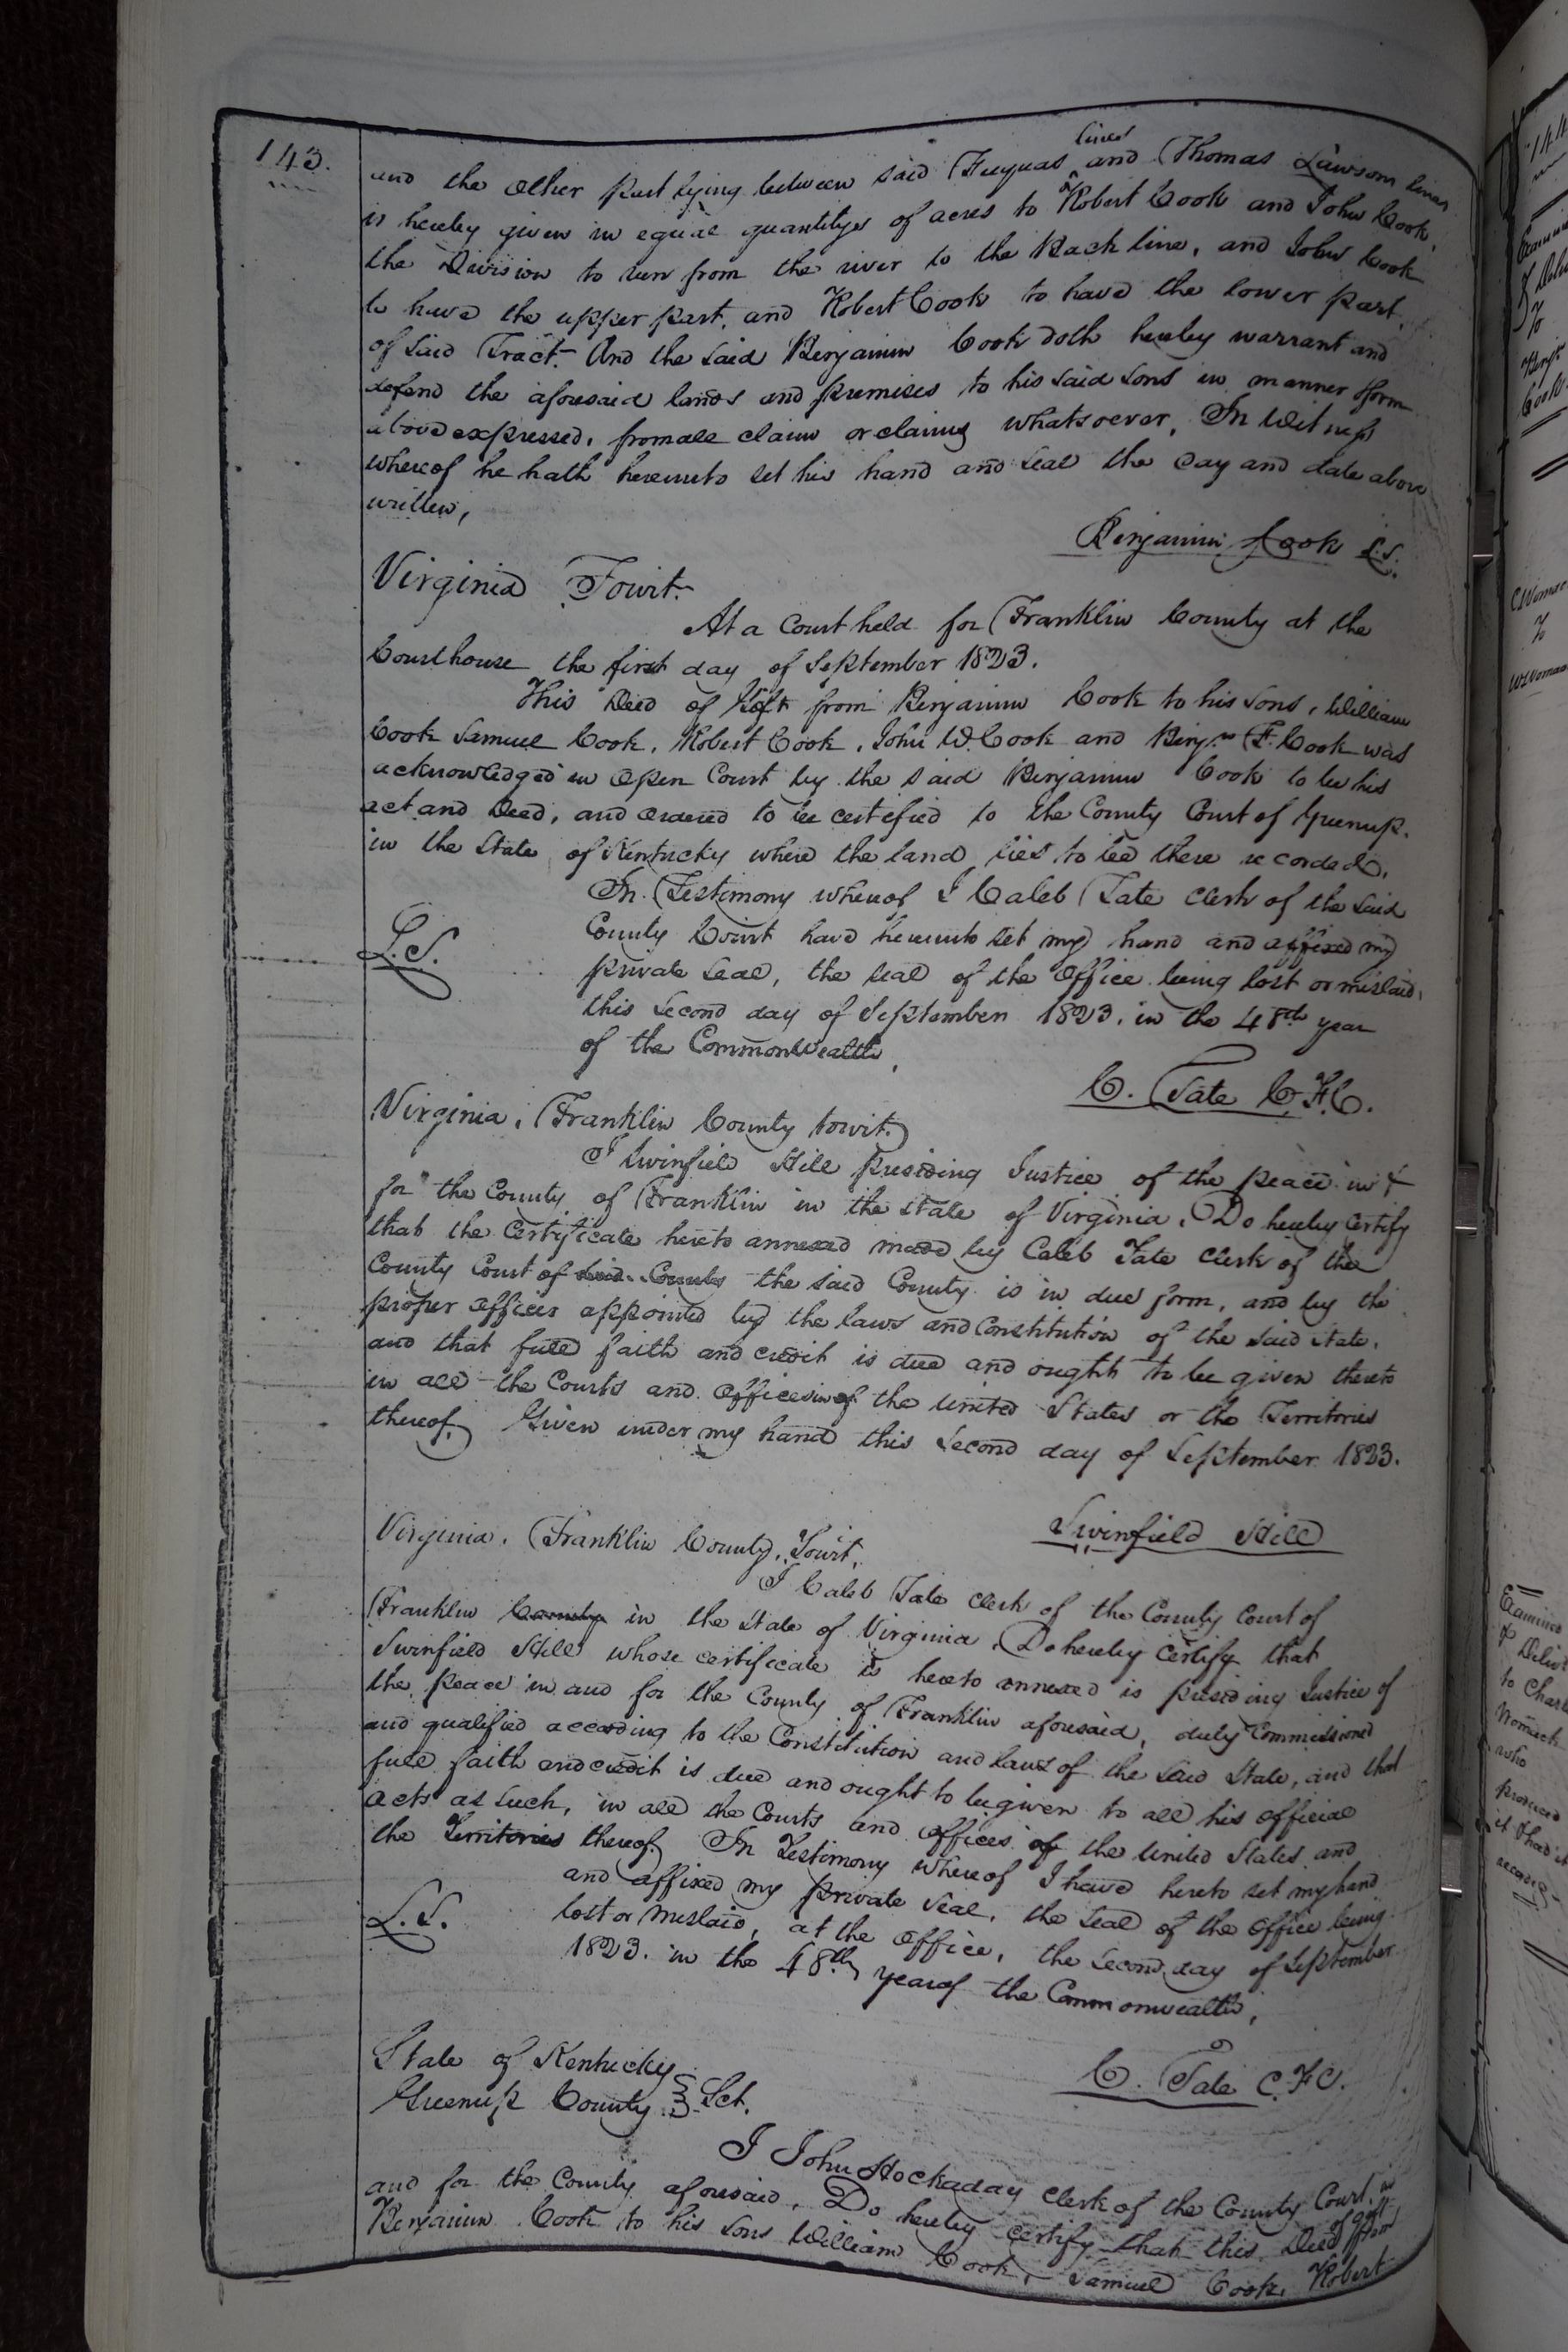 143.
and the other part lying between said Fuquas lines and Thomas Lawsons lines
is hereby given in equal quantitys of acres to Robert Cook and John Cook,
the Division to run from the river to the Back line, and John Cook
to have the upper part, and Robert Cook to have the lower part,
of said Tract. And the said Benjamin Cook doth hereby warrant and
defend the aforesaid lands and premises to his said sons in manner & form
above expressed, from all claim or claims whatsoever, In Witness
whereof he hath hereunto set his hand and seal the day and date above
written,
Benjamin Cook L.S.
Virginia Towit.
At a Court held for Franklin County at the
Courthouse the first day of September 1823.
This Deed of Gift from Benjamin Cook to his sons, William
Cook Samuel Cook, Robert Cook, John W. Cook and Benjn. F. Cook was
acknowledged in open Court by the said Benjamin Cook to be his
act and Deed, and ordered to be certified to the County Court of Greenup.
in the State of Kentucky where the land lies to bee there recorded.
In Testimony whereof I Caleb Tate Clerk of the said
County Court have hereunto set my hand and affixed my
L.S.
private seal, the seal of the office being lost or mislaid,
this second day of September 1823, in the 48th year
of the Commonwealth,
C. Tate C.F.C.
Virginia, Franklin County towit.
I Swinfield Hill presiding Justice of the peace in &
for the County of Franklin in the state of Virginia, Do hereby Certify
that the Certificate hereto annexed made by Caleb Tate Clerk of the
County Court of said County the said County is in due form, and by the
proper officer appointed by the laws and Constitution of the said state,
and that full faith and credit is due and ought to be given thereto
in all the Courts and offices in of the United States or the Territories
thereof, Given under my hand this second day of September 1823.
Swinfield Hill
Virginia, Franklin County, Towit,
I Caleb Tate Clerk of the County Court of
Franklin County in the State of Virginia, Do hereby Certify that
Swinfield Hill whose certificate is hereto annexed is presiding Justice of
the peace in and for the County of Franklin aforesaid, duly Commissioned
and qualified according to the Constitution and laws of the said State, and that
full faith and credit is due and ought to be given to all his official
acts as such, in all the Courts and offices of the United States and
the Territories thereof. In Testimony whereof I have hereto set my hand
and affixed my private seal, the seal of the office being
L.S.
lost or mislaid, at the office, the second day of September
1823. in the 48th year of the Commonwealth,
C. Tate C.F.C.
State of Kentucky
Greenup County } Sct.
I John Hockaday Clerk of the County Court, in
and for the County aforesaid, Do hereby certify that this Deed of gift from
Benjamin Cook to his sons William Cook, Samuel Cook, Robert
144
Benjn
Cook
Womac
To
Examined
& Delivd
to Charles
Womack
who
produced
it & had it
recorded